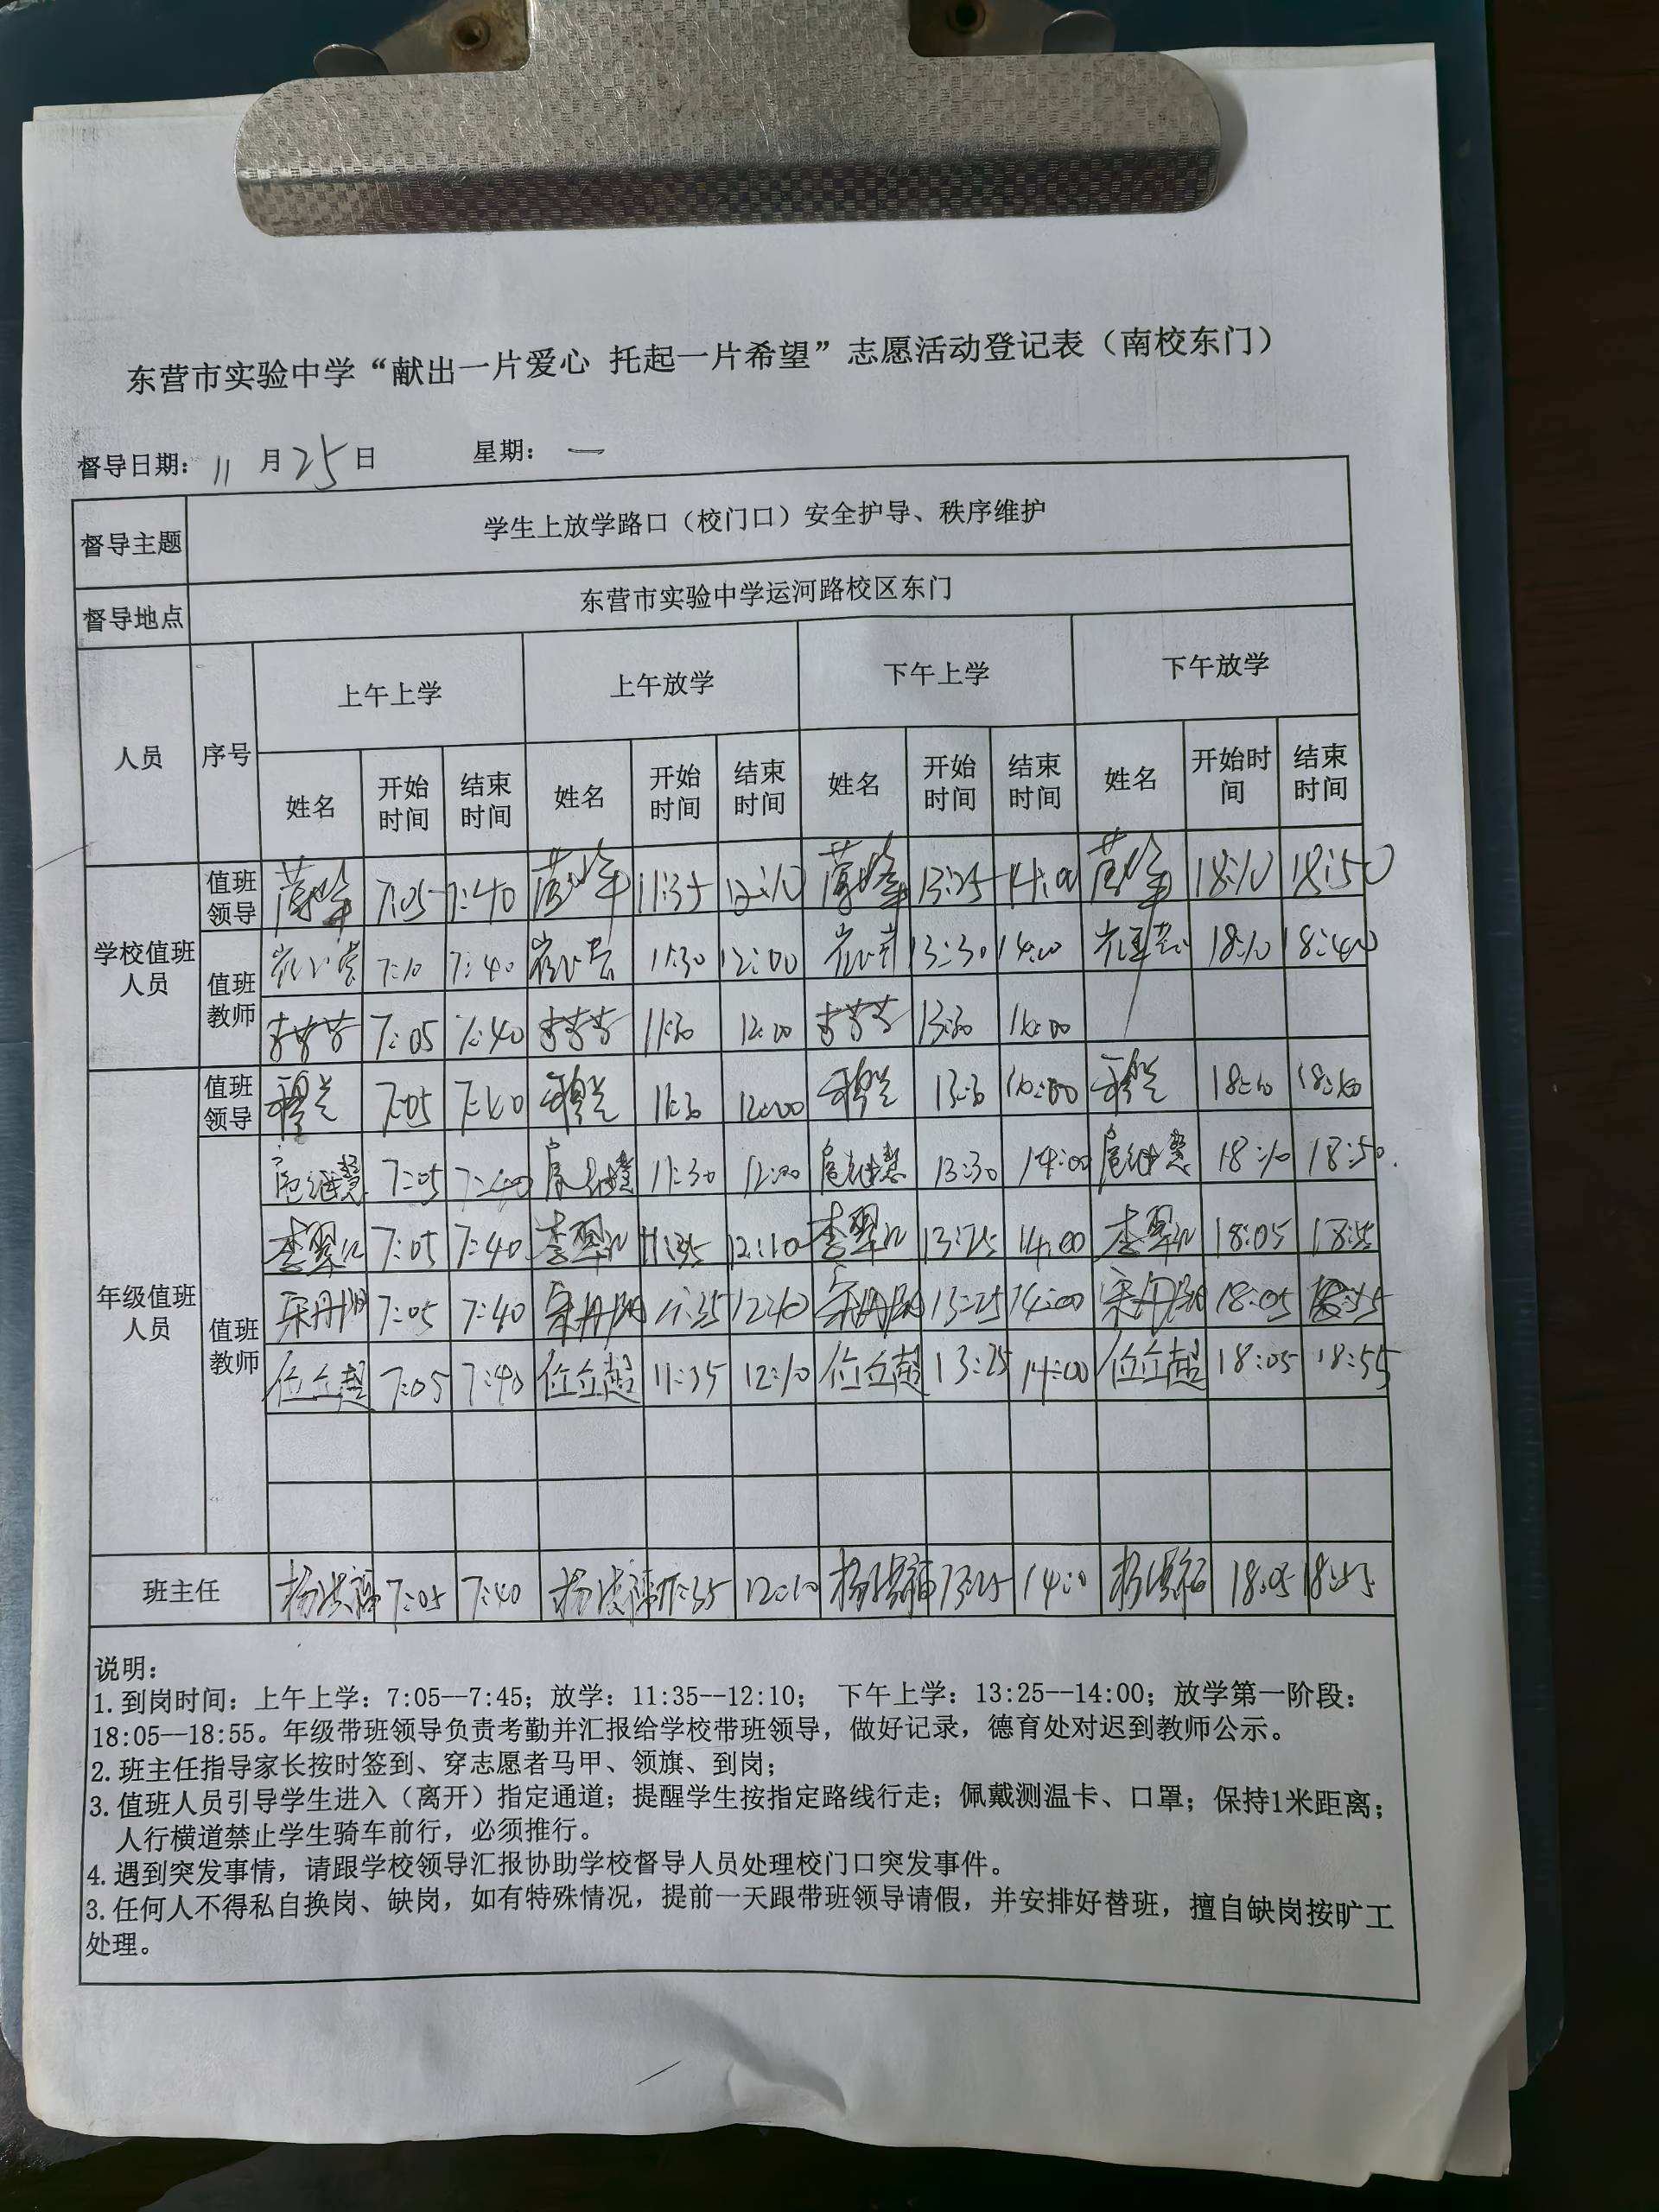 东营市实验中学“献出一片爱心 托起一片希望”志愿活动登记表（南校东门）
督导日期： 11 月 25 日 星期： 一
督导主题 学生上放学路口（校门口）安全护导、秩序维护
督导地点 东营市实验中学运河路校区东门
人员 序号 上午上学 上午放学 下午上学 下午放学
姓名 开始时间 结束时间 姓名 开始时间 结束时间 姓名 开始时间 结束时间 姓名 开始时间 结束时间
学校值班人员 值班领导 7:05 7:40 11:35 12:10 13:25 14:00 18:10 18:50
值班教师 7:10 7:40 11:30 12:00 13:30 14:00 18:10 18:40
李芳芳 7:05 7:40 李芳芳 11:30 12:00 李芳芳 13:30
年级值班人员 值班领导 7:05 7:40 11:30 12:00 13:30 18:10
值班教师 扈继慧 7:05 7:40 扈继慧 11:30 12:00 扈继慧 13:30 14:00 扈继慧 18:10 18:50
李翠红 7:05 7:40 李翠红 11:35 12:10 李翠红 13:25 14:00 李翠红 18:05 18:55
宋丹丹 7:05 7:40 宋丹丹 11:35 12:10 宋丹丹 13:25 14:00 宋丹丹 18:05
位立超 7:05 7:40 位立超 11:35 12:10 位立超 13:25 14:00 位立超 18:05 18:55
班主任 7:05 7:40 11:35 12:10 13:25 14:00 18:05
说明：
1.到岗时间：上午上学：7:05--7:45；放学：11:35--12:10； 下午上学：13:25--14:00；放学第一阶段：
18:05--18:55。年级带班领导负责考勤并汇报给学校带班领导，做好记录，德育处对迟到教师公示。
2.班主任指导家长按时签到、穿志愿者马甲、领旗、到岗；
3.值班人员引导学生进入（离开）指定通道；提醒学生按指定路线行走；佩戴测温卡、口罩；保持1米距离；
人行横道禁止学生骑车前行，必须推行。
4.遇到突发事情，请跟学校领导汇报协助学校督导人员处理校门口突发事件。
3.任何人不得私自换岗、缺岗，如有特殊情况，提前一天跟带班领导请假，并安排好替班，擅自缺岗按旷工
处理。